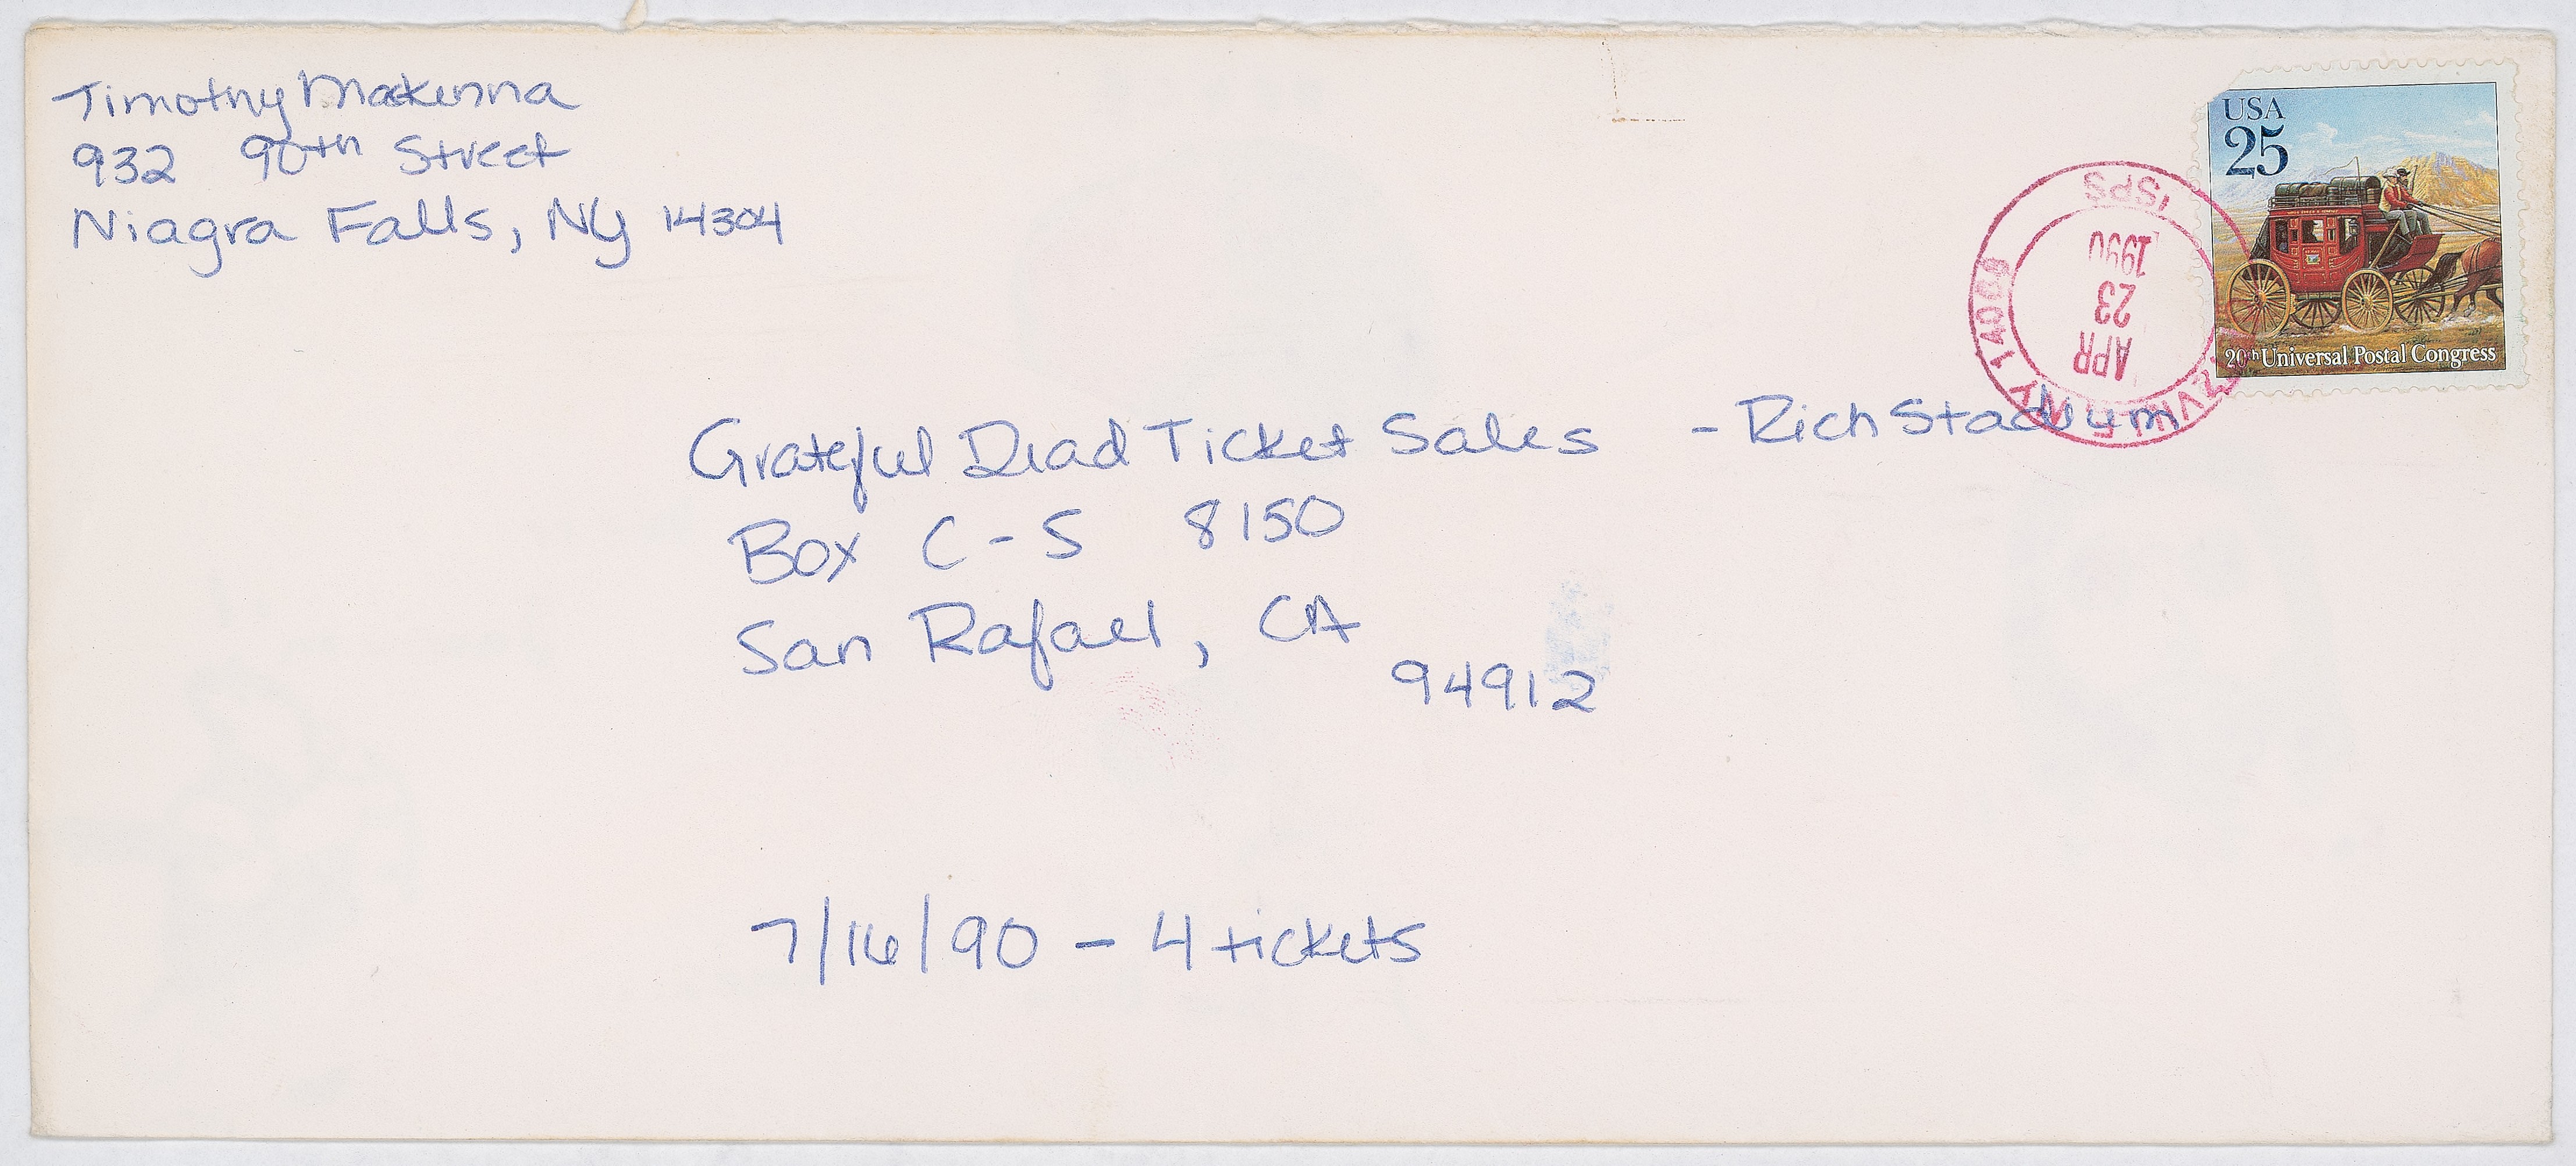 Timothy Mackenna
932 90th Street
Niagra Falls, NY 14304
USA
25
20th Universal Postal Congress
USPS
1990
23
APR
Grateful Dead Ticket Sales - Rich Stadium
Box C-S 8150
San Rafael, CA
94912
7/16/90 - 4 tickets